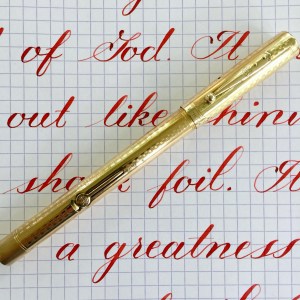 of God. It
out like shinin
shook foil. It
a greatness